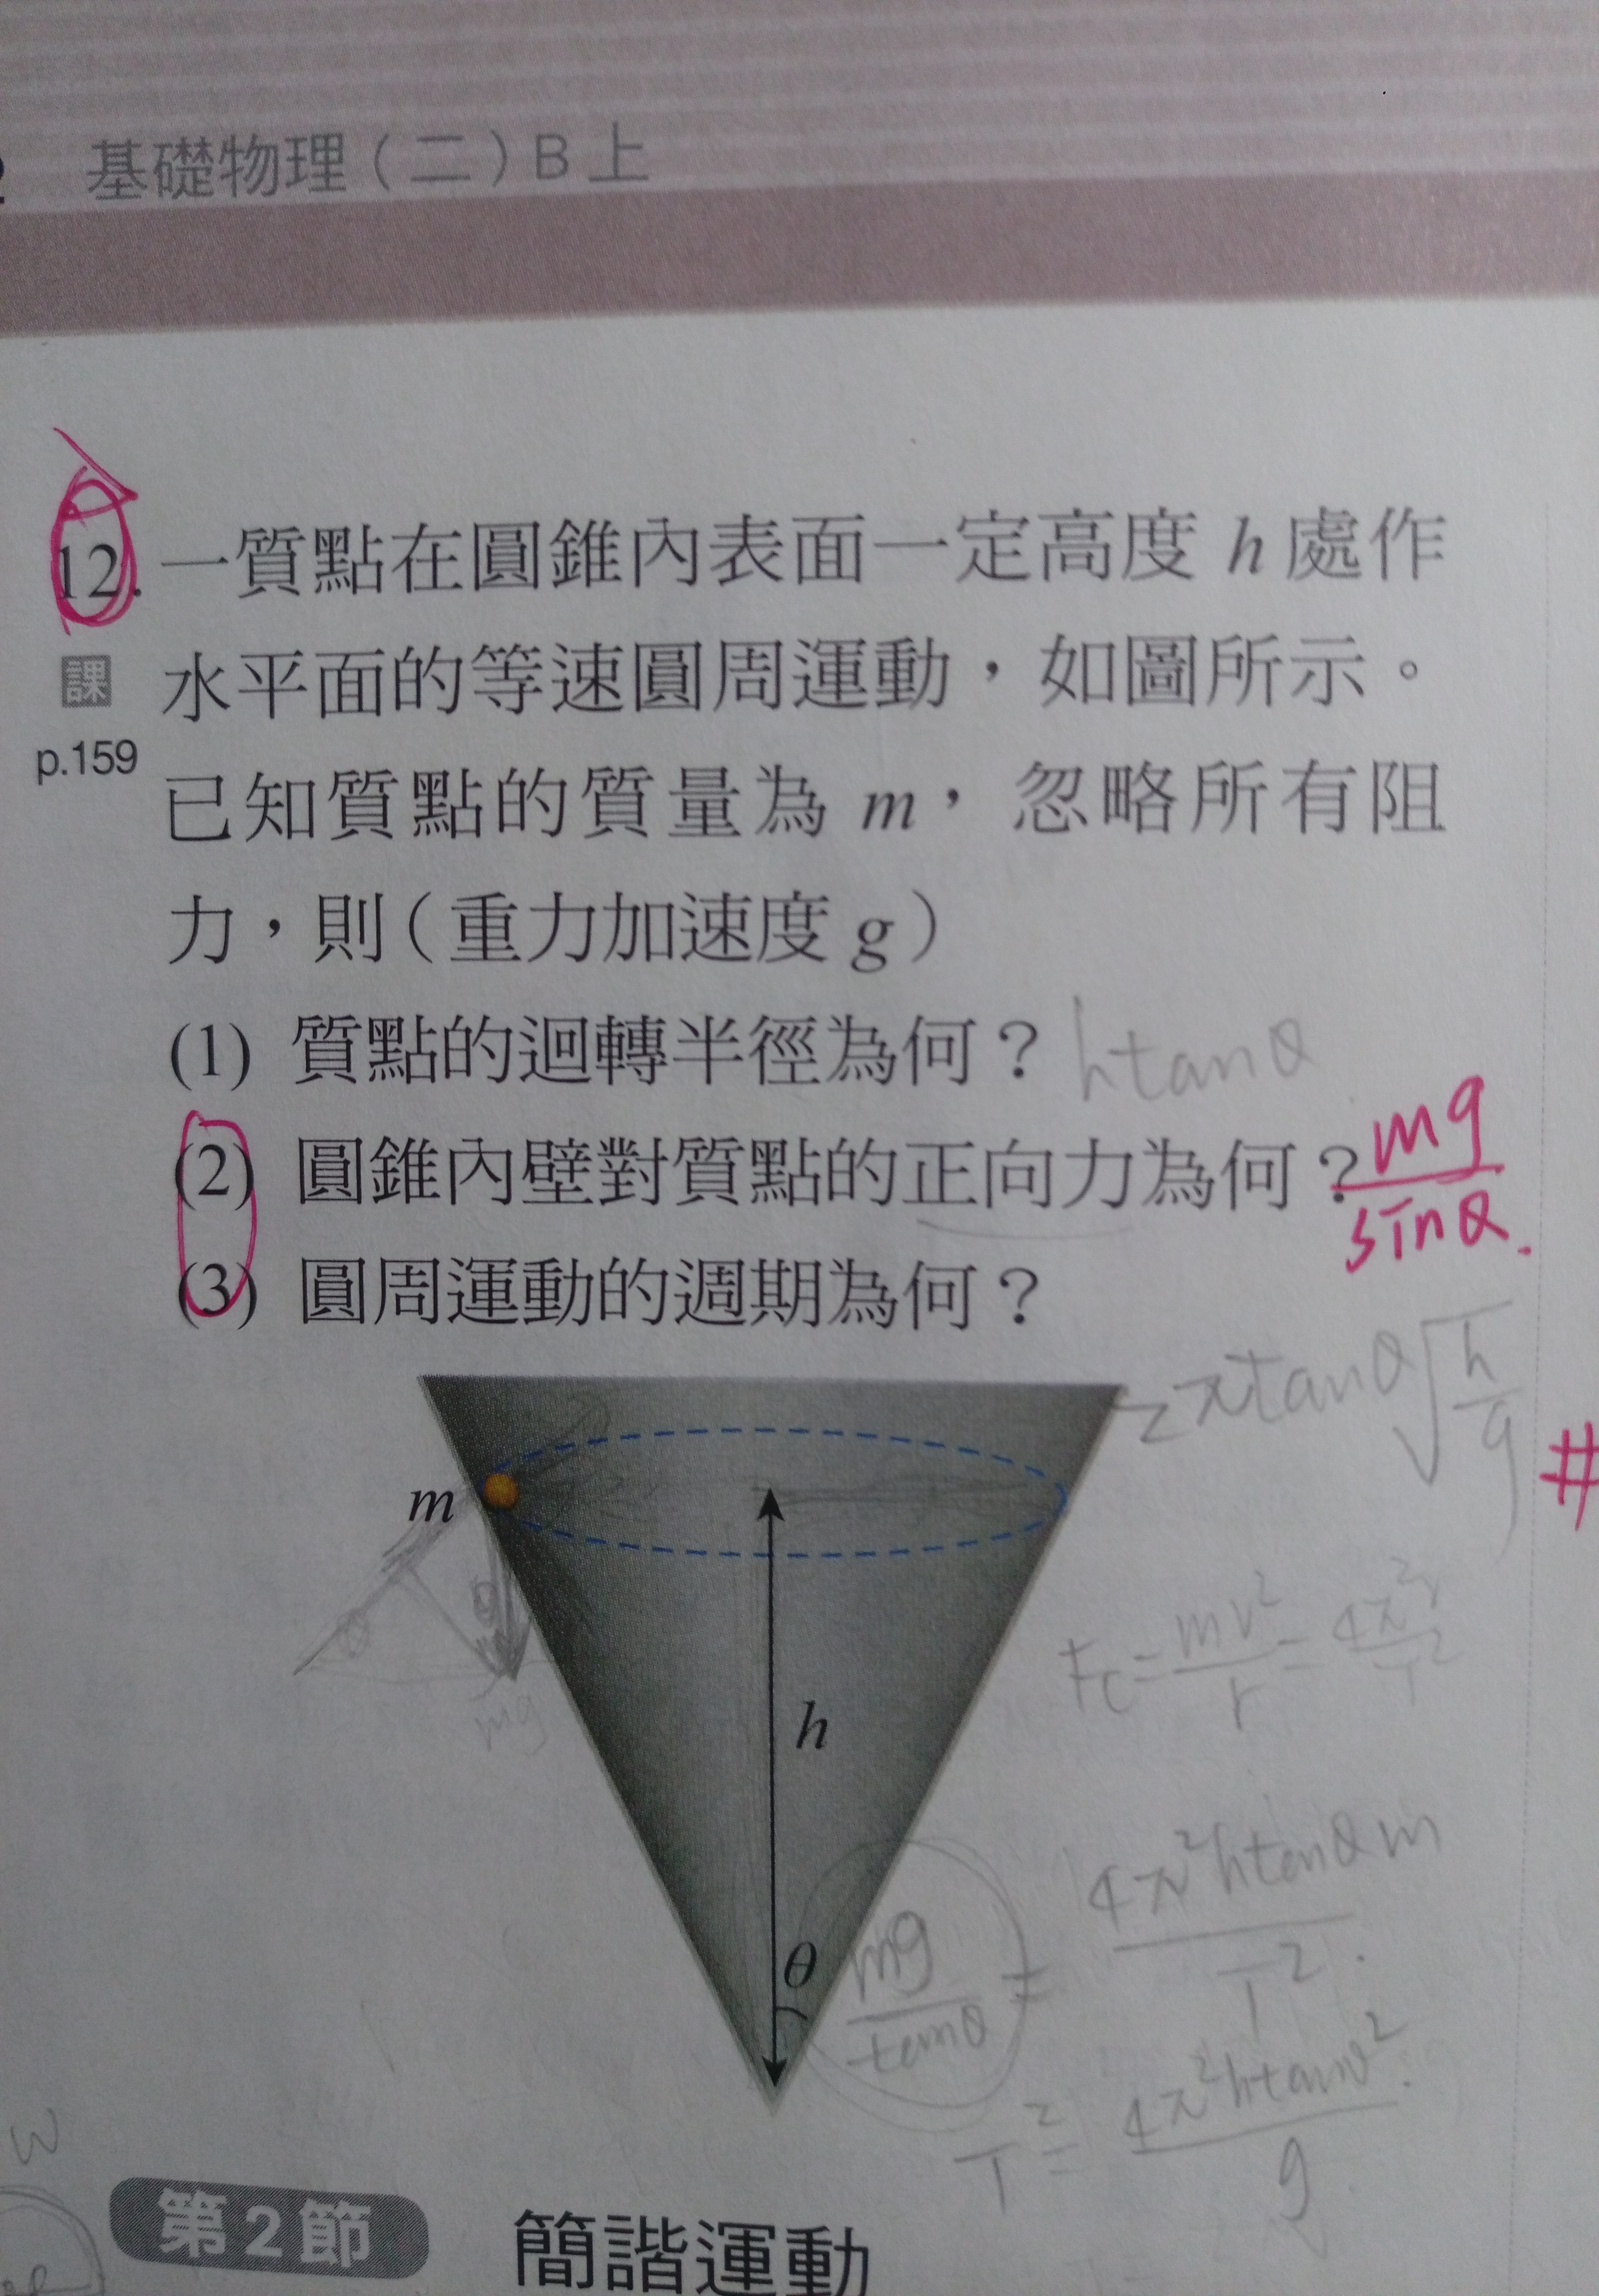 基礎物理(二)B上
12. 一質點在圓錐內表面一定高度 h 處作
課 水平面的等速圓周運動,如圖所示。
p.159 已知質點的質量為 m,忽略所有阻
力,則(重力加速度 g)
(1) 質點的迴轉半徑為何? htanθ
(2) 圓錐內壁對質點的正向力為何? mg/sinθ.
(3) 圓周運動的週期為何?
2πtanθ√(h/g)
#
m
θ
mg
Fc = mv²/r = 4π²/T²
h
θ
mg/tanθ = 4π²htanθm/T².
T² = 4π²htanθ²/g.
W
第2節 簡諧運動